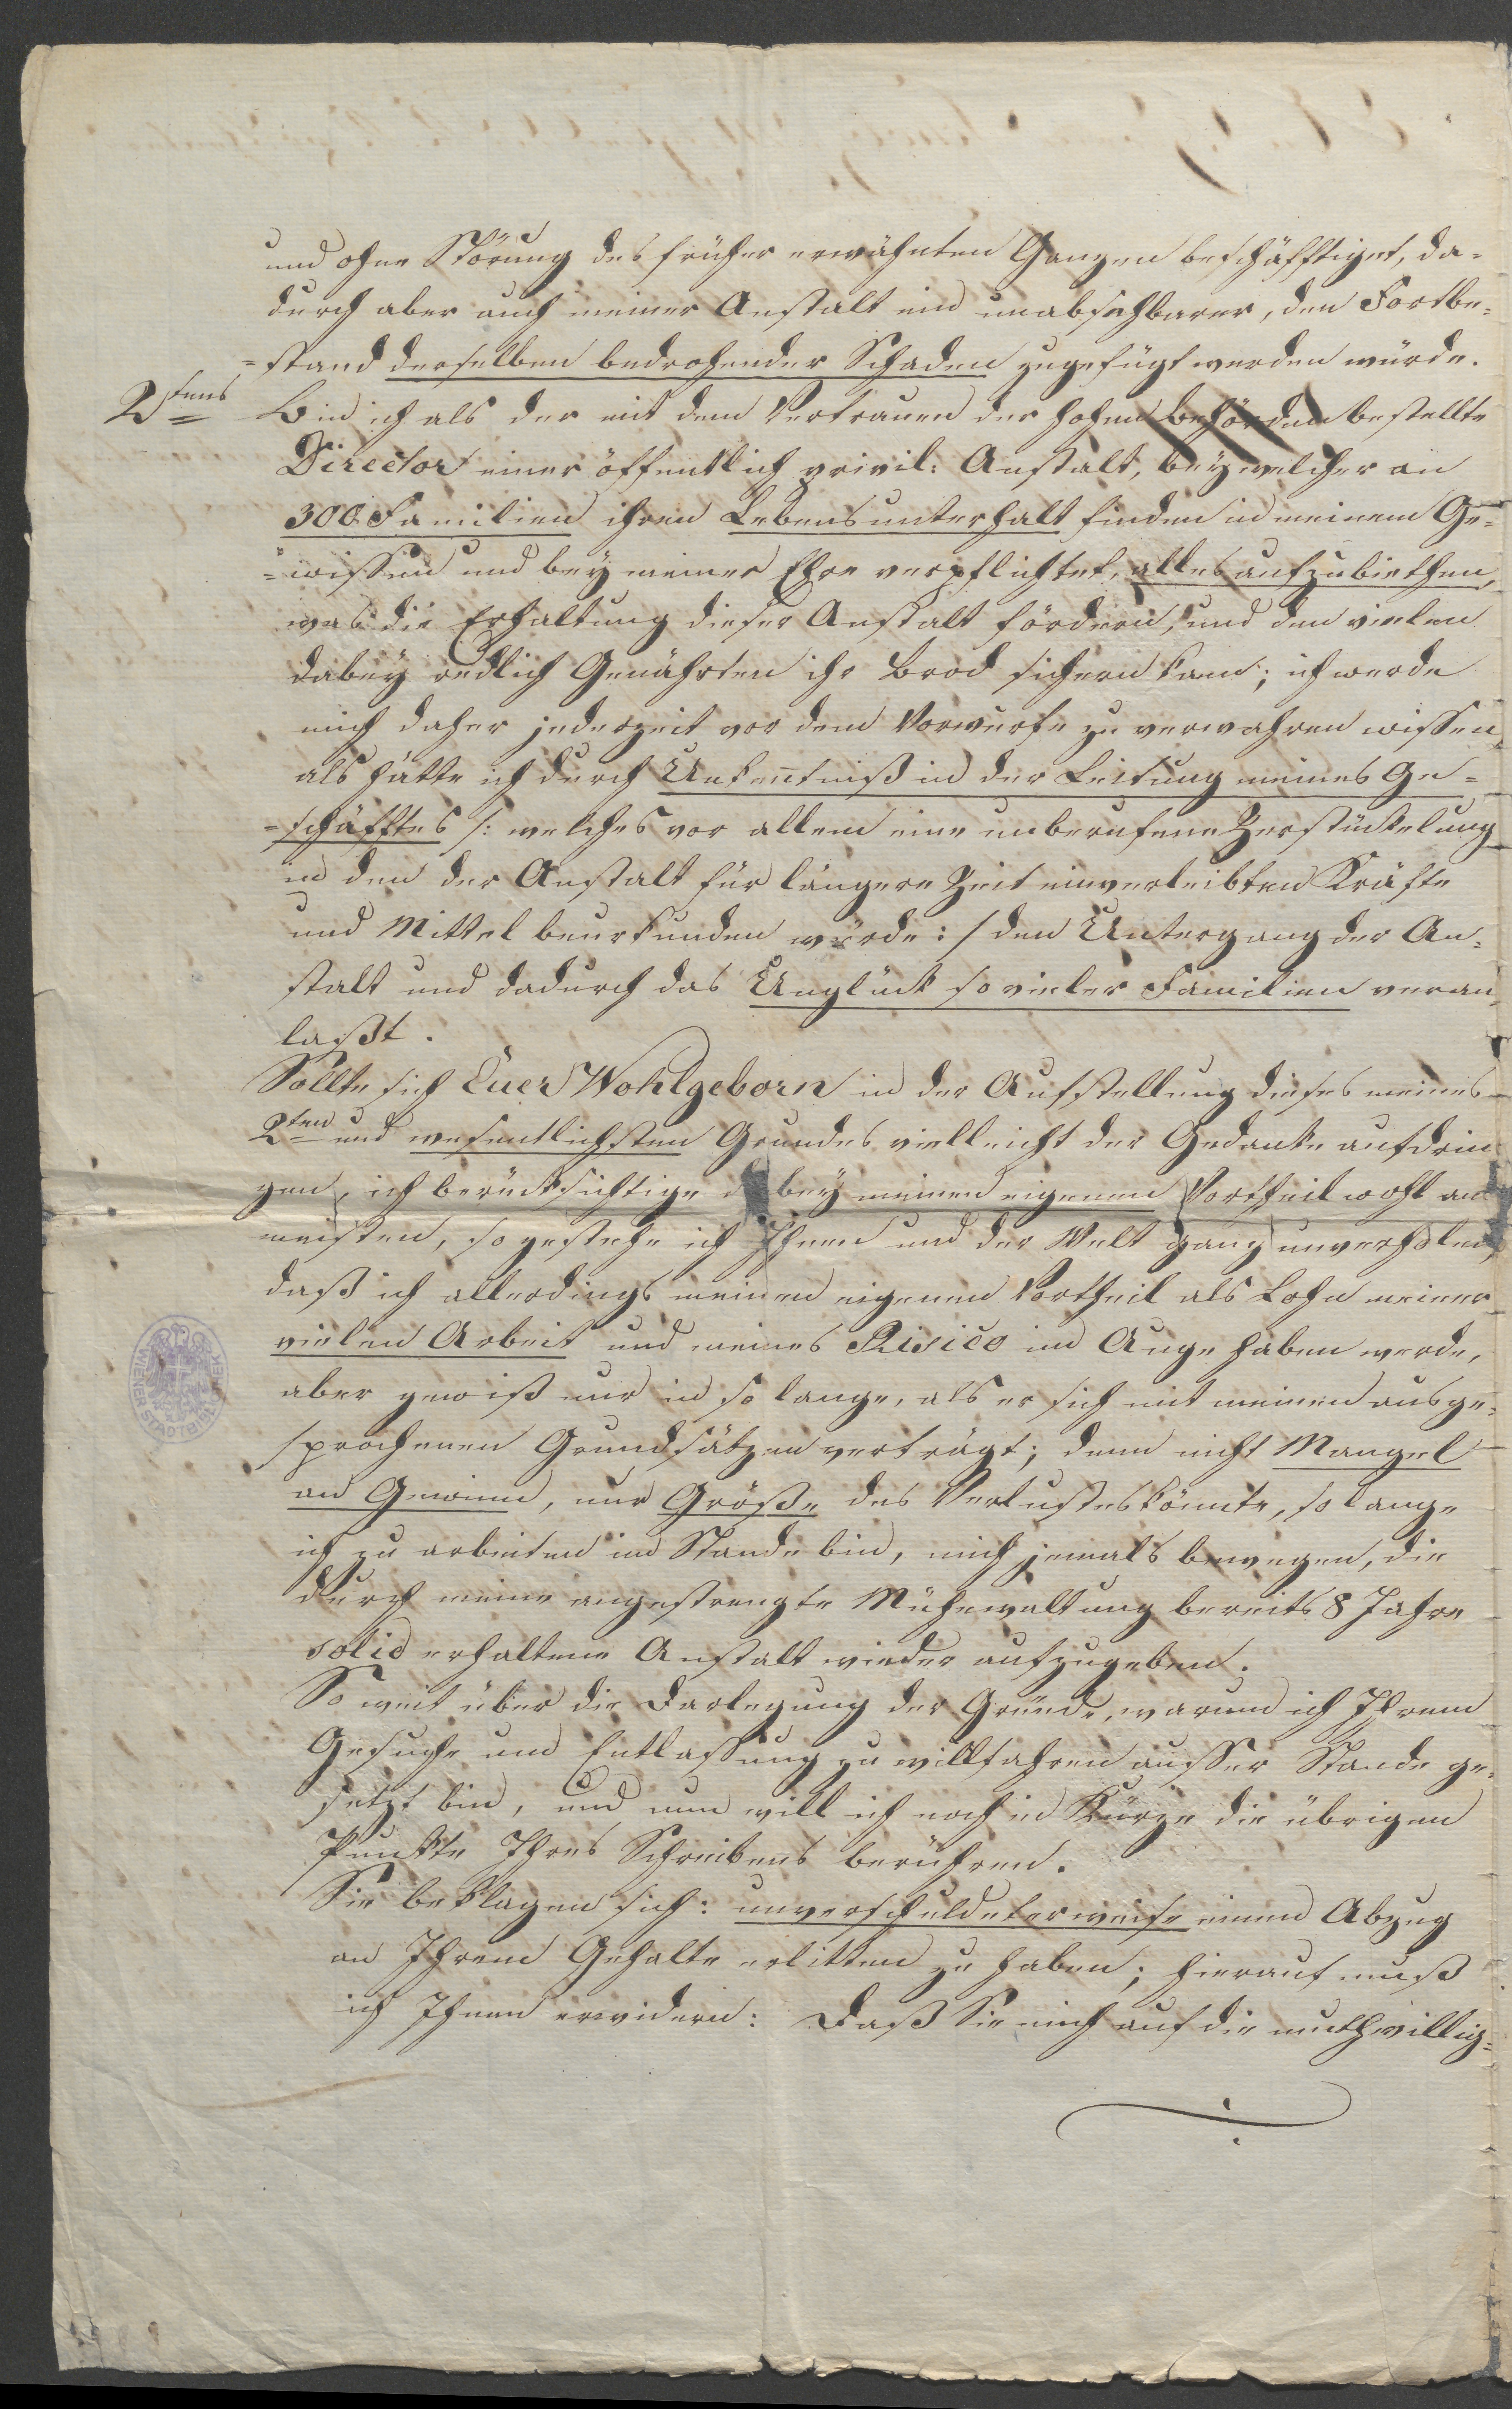 und ohne Störung des früher erwähnten Ganzen beschäfftiget, da-
durch aber auch meiner Anstalt ein unabsehbarer, den Fortbe-
=stand derselben bedrohender Schaden zugefügt werden würde.
2tens Bin ich als der mit dem Vertrauen der hohen Behörden bestellte
Director einer öffentlich privil: Anstalt, bey welcher an
300 Familien ihren Lebensunterhalt finden in meinem Ge-
=wissen und bey meiner Ehre verpflichtet, alles aufzubiethen,
was die Erhaltung dieser Anstalt fördern, und den vielen
dabey redlich Genährten ihr Brod sichern kann; ich werde
mich daher jederzeit vor dem Vorwurfe zu verwahren wissen,
als hätte ich durch Unkenntniß in der Leitung meines Ge=
=schäfftes /: welches vor allem eine unberufene Zerstückelung
in den der Anstalt für längere Zeit einverleibten Kräfte
und Mittel beurkunden würde :/ den Untergang der An-
stalt und dadurch das Unglück so vieler Familien veran-
laßt.
Sollte sich Euer Wohlgeborn in der Aufstellung dieses meines
2ten und wesentlichsten Grundes vielleicht der Gedanke aufdrin
gen, ich berücksichtige dabey meinen eigenen Vortheil wohl am
meisten, so gestehe ich Ihnen und der Welt ganz unverhohlen,
daß ich allerdings meinen eigenen Vortheil als Lohn meiner
vielen Arbeit und meines Risico im Auge haben werde,
aber gewiß nur in so lange, als er sich mit meinen ausge-
sprochenen Grundsätzen verträgt; denn nicht Mangel
an Gewinn, nur Größe des Verlustes könnte, so lange
ich zu arbeiten im Stande bin, mich jemals bewegen, die
durch meine angestrengte Mühewaltung bereits 8 Jahre
solid erhaltene Anstalt wieder aufzugeben.
So weit über die Darlegung der Gründe, warum ich Ihrem
Gesuche um Entlassung zu willfahren ausser Stande ge-
setzt bin, und nun will ich noch in Kürze die übrigen
Punkte Ihres Schreibens berühren.
Sie beklagen sich: unverschuldeterweise einen Abzug
an Ihrem Gehalte erlitten zu haben; hierauf muß
ich Ihnen erwidern: Daß Sie mich auf die muthwillig-